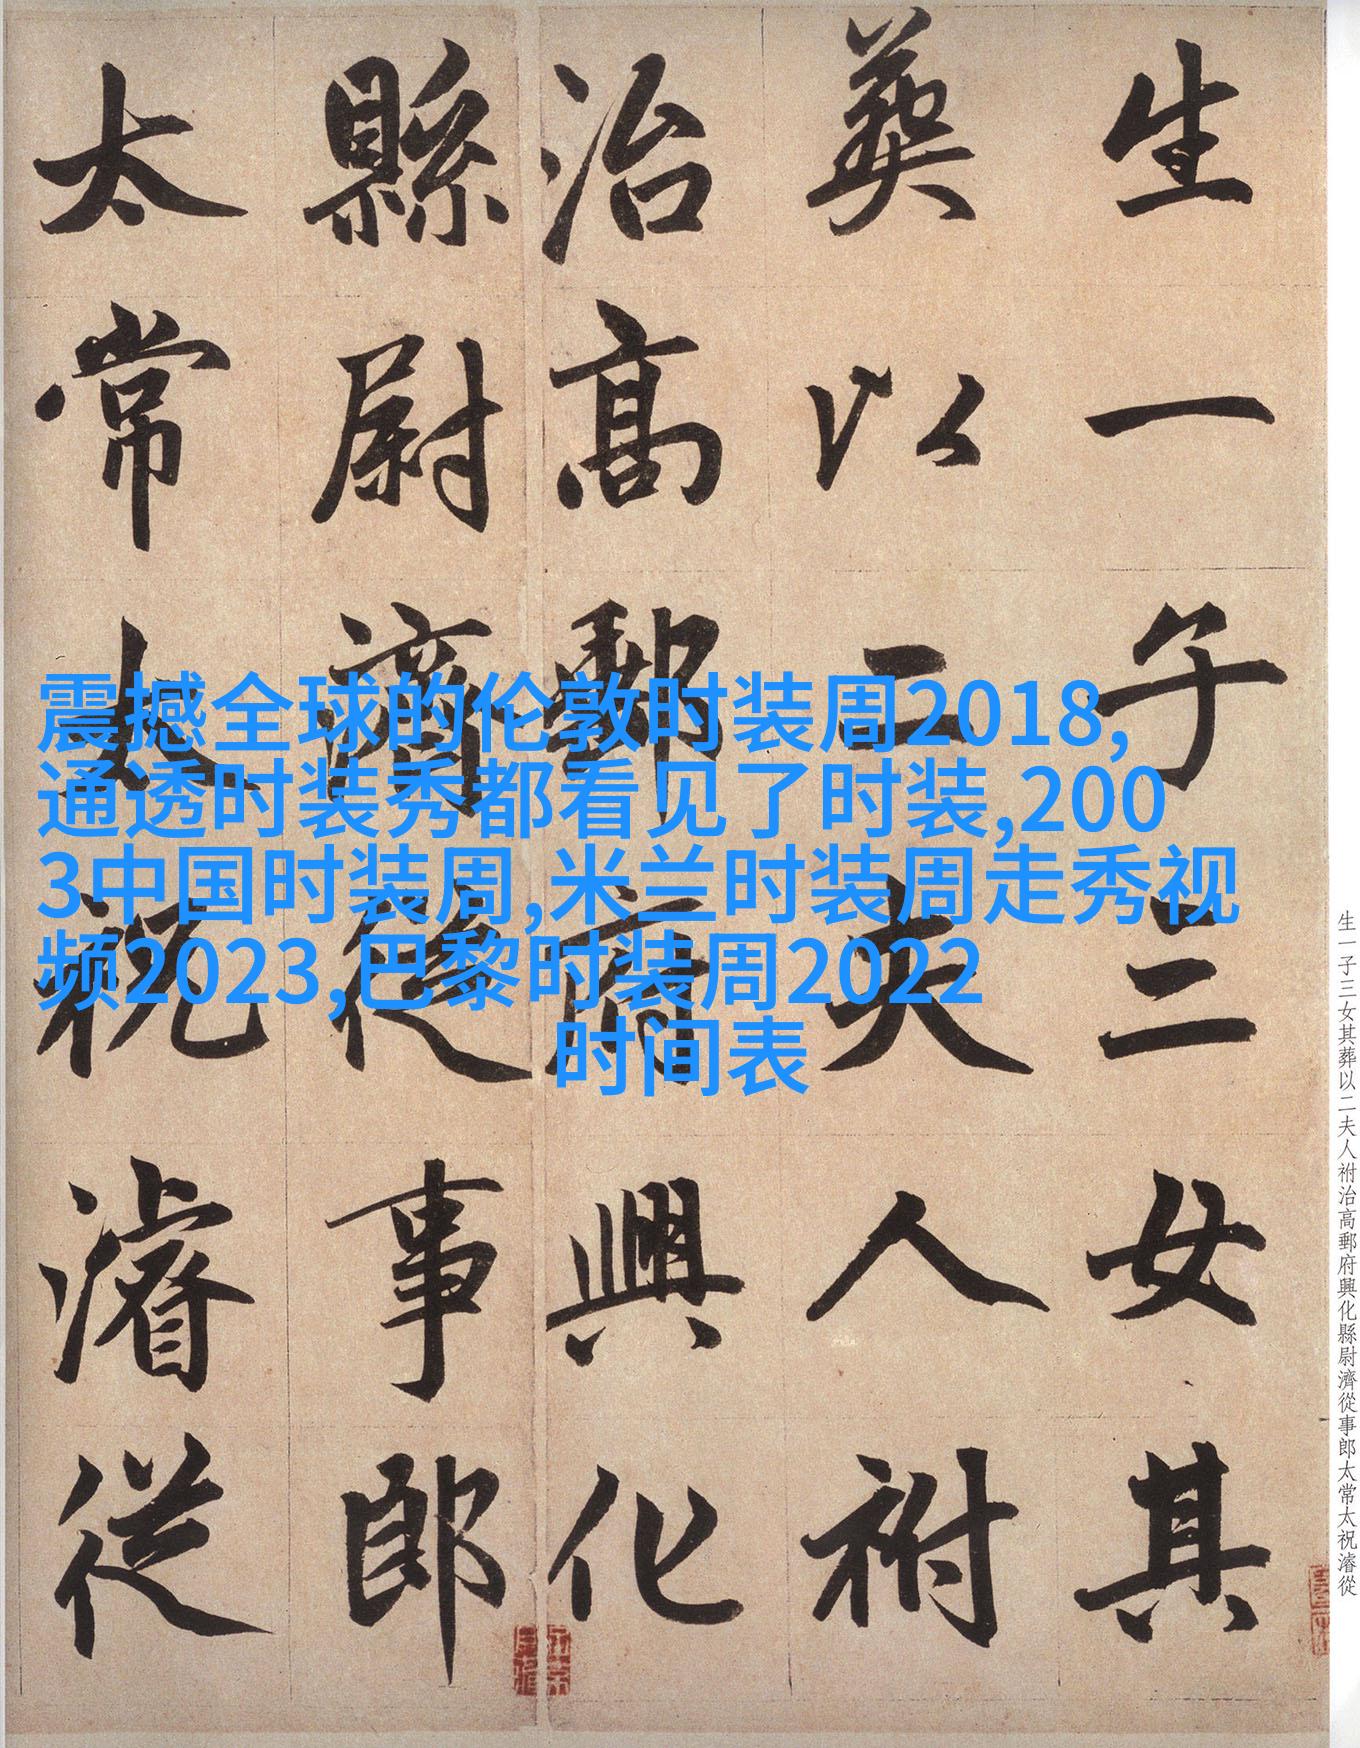 生一子三女其
葬以二夫人祔
治高郵府興化
縣尉濟從事郎
太常太祝濬從
震撼全球的伦敦时装周2018,
通透时装秀都看见了时装,200
3中国时装周,米兰时装周走秀视
频2023,巴黎时装周2022
时间表
生一子三女其葬以二夫人祔治高郵府興化縣尉濟從事郎太常太祝濬從